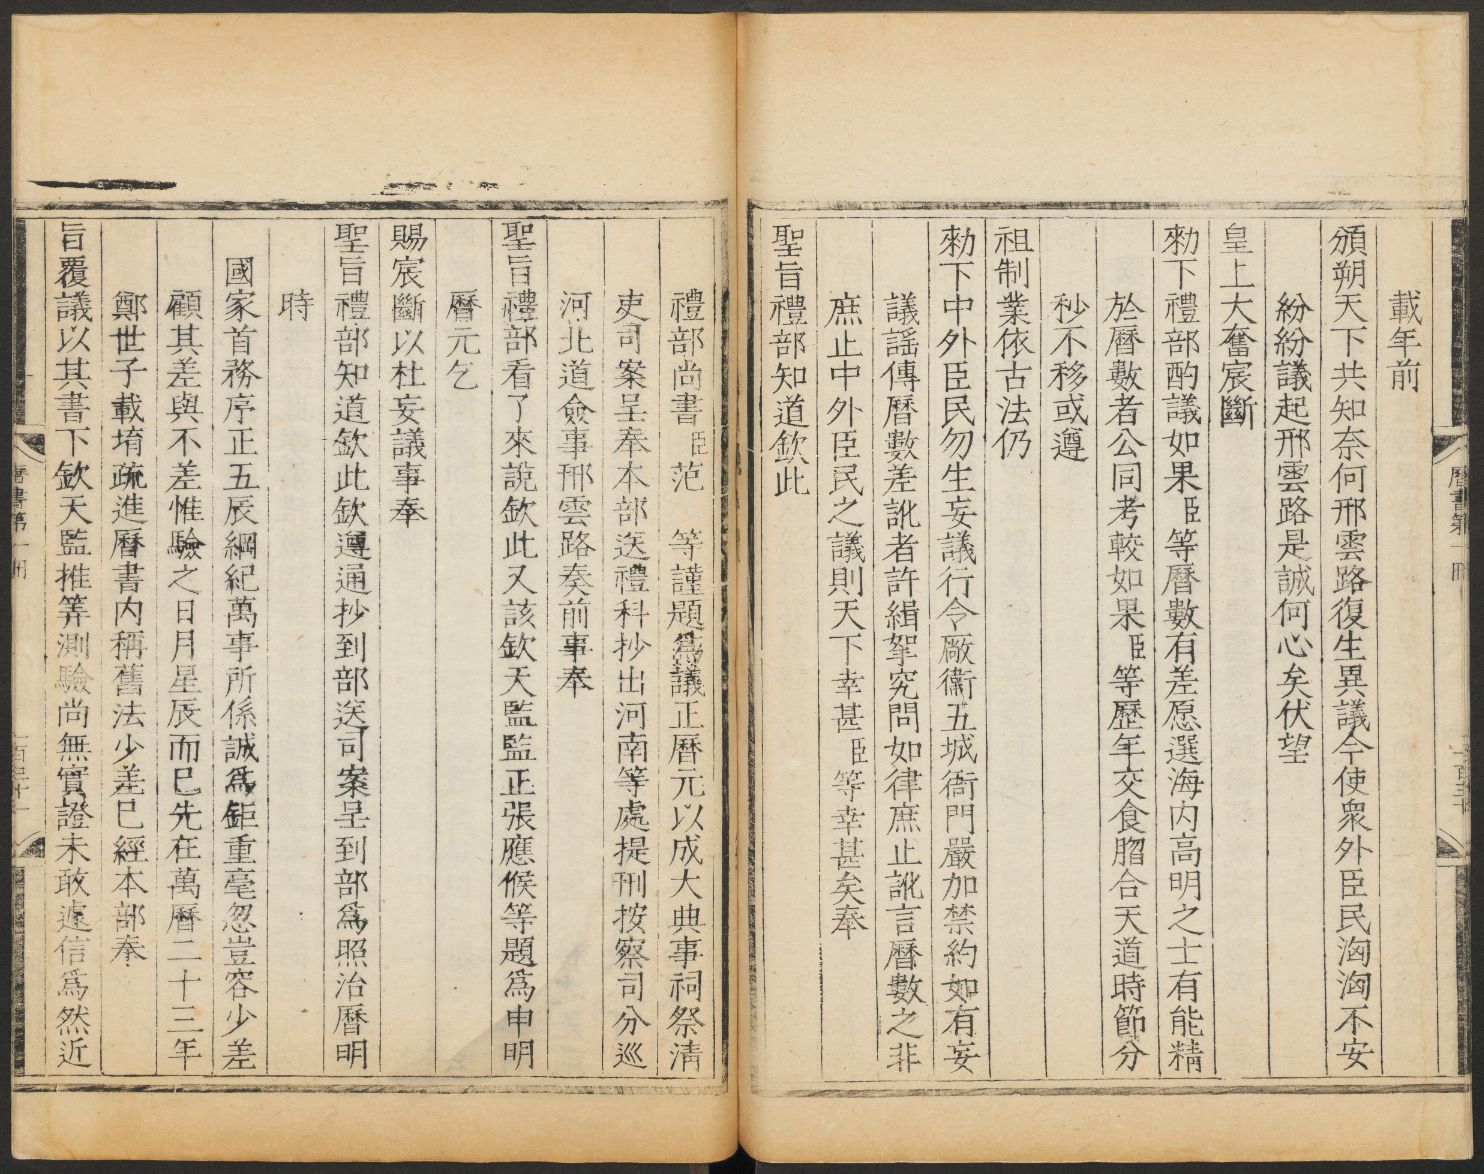 載年前
頒朔天下共知奈何邢雲路復生異議今使衆外臣民洶洶不安
紛紛議起邢雲路是誠何心矣伏望
皇上大奮宸斷
勑下禮部酌議如果臣等曆數有差愿選海内高明之士有能精
於曆數者公同考較如果臣等歷年交食脗合天道時節分
秒不移或遵
祖制業依古法仍
勑下中外臣民勿生妄議行令廠衛五城衙門嚴加禁約如有妄
議謠傳曆數差訛者許緝挐究問如律庶止訛言曆數之非
庶止中外臣民之議則天下幸甚臣等幸甚矣奉
聖旨禮部知道欽此
禮部尚書臣范 等謹題爲議正曆元以成大典事祠祭清
吏司案呈奉本部送禮科抄出河南等處提刑按察司分巡
河北道僉事邢雲路奏前事奉
聖旨禮部看了來說欽此又該欽天監監正張應候等題爲申明
曆元乞
賜宸斷以杜妄議事奉
聖旨禮部知道欽此欽遵通抄到部送司案呈到部爲照治曆明
時
國家首務序正五辰綱紀萬事所係誠爲鉅重毫忽豈容少差
顧其差與不差惟驗之日月星辰而已先在萬曆二十三年
鄭世子載堉疏進曆書内稱舊法少差已經本部奉
旨覆議以其書下欽天監推筭測驗尚無實證未敢遽信爲然近
曆書第一冊
曆書第一冊